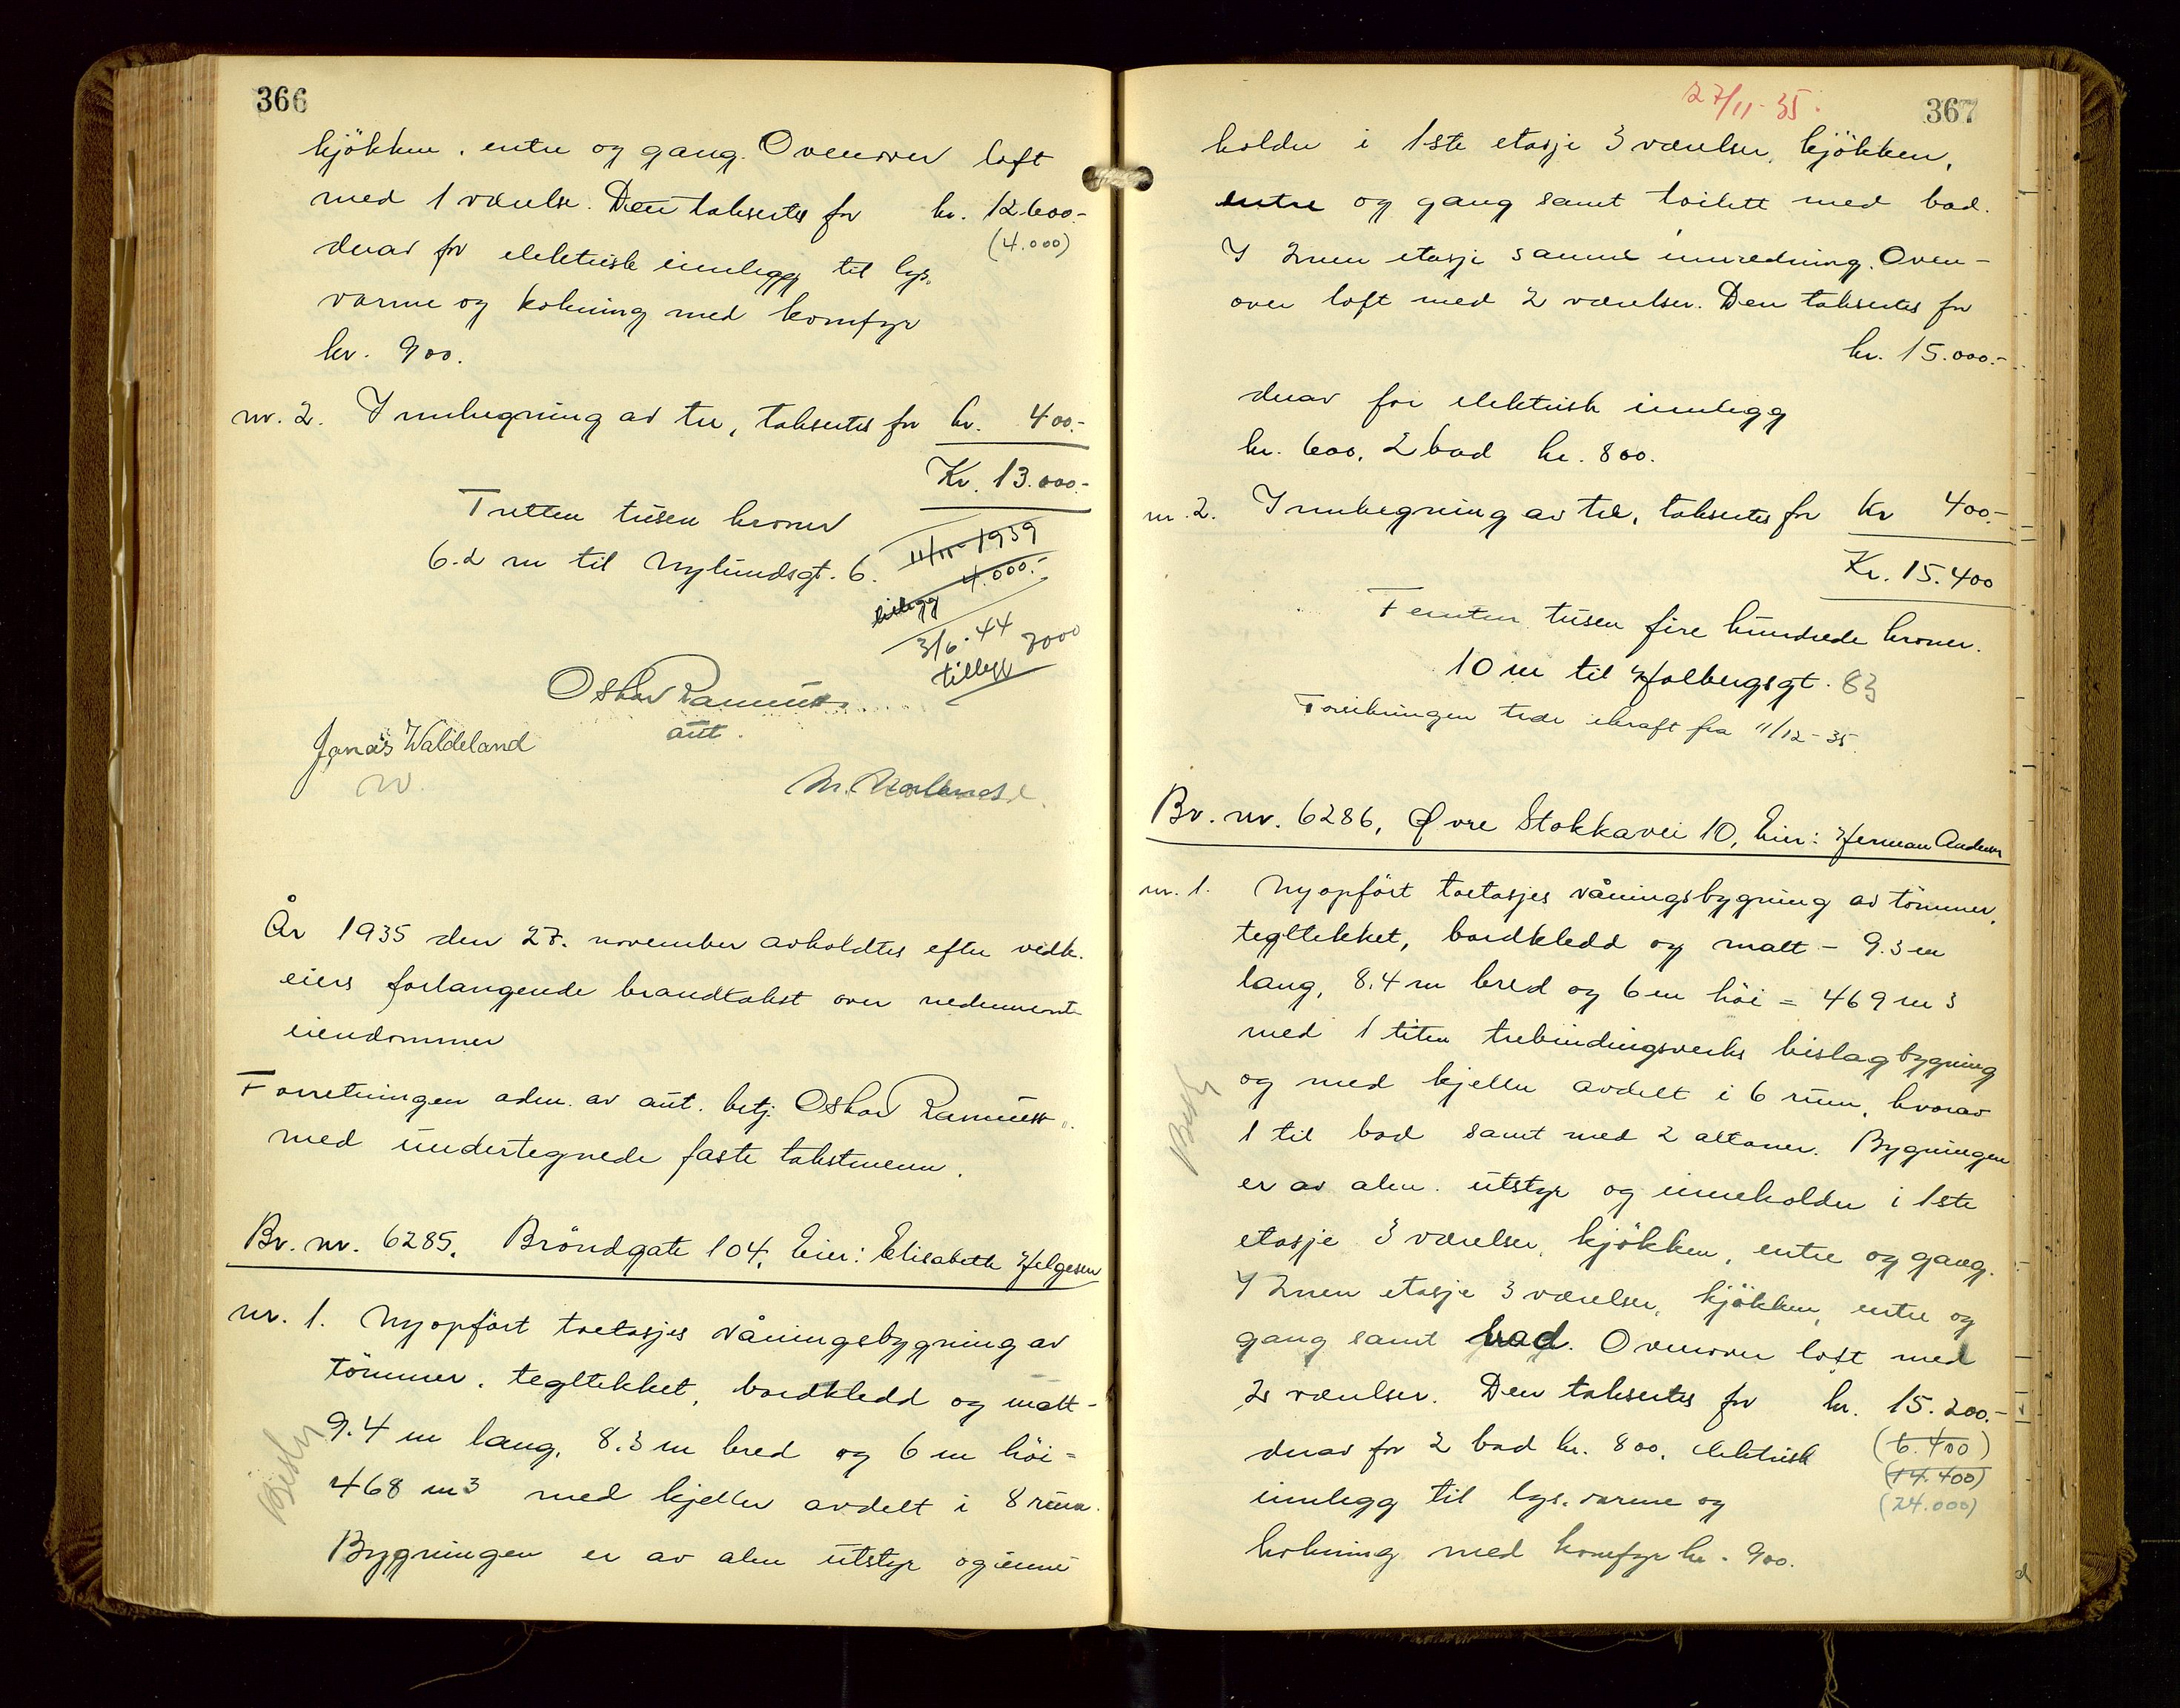 366
kjökken, entre og gang. Ovenover loft
med 1 værelse. Den taksertes for kr. 12.600.-
(4.000)
derav for elektrisk innlegg til lys,
varme og kokning med komfyr
kr. 900.
nr. 2. Innhegning av tre, taksertes for kr. 400.-
Kr. 13.000.-
Tretten tusen kroner
6.2 m til Nylundsgt. 6.
11/11-1939
tillegg 4.000.-
3/6.-44
tillegg 3000
Oskar Rasmuss.
aut.
Jonas Waldeland
W.
År 1935 den 27. november avholdtes efter vedk.
eiers forlangende brandtakst over nedennevnte
eiendommer
Forretningen adm. av aut. betj. Oskar Rasmuss.
med undertegnede faste takstmenn.
Br. nr. 6285. Bröndgate 104, Eier: Elisabeth Helgesen
nr. 1. Nyopført toetasjes våningsbygning av
tömmer, tegltekket, bordkledd og malt -
9.4 m lang, 8.3 m bred og 6 m höi =
468 m3 med kjeller avdelt i 8 rum.
Bygningen er av alm utstyr og inne
27/11-35.
367
holder i 1ste etasje 3 værelser, kjökken,
entre og gang samt toilett med bad.
I 2nen etasje samme innredning. Oven-
over loft med 2 værelser. Den taksertes for
kr. 15.000.-
derav for elektrisk innlegg
kr. 600, 2 bad kr. 800.
nr. 2. Innhegning av tre, taksertes for Kr 400.-
Kr. 15.400
Femten tusen fire hundrede kroner.
10 m til Holbergsgt. 83
Forsikringen treder ikraft fra 11/12-35.
Br. nr. 6286, Øvre Stokkavei 10, Eier: Herman Andersen
nr. 1. Nyopfört toetasjes våningsbygning av tömmer,
tegltekket, bordkledd og malt - 9.3 m
lang, 8.4 m bred og 6 m höi = 469 m3
med 1 liten trebindingsverks bislagbygning
og med kjeller avdelt i 6 rum, hvorav
1 til bad samt med 2 altaner. Bygningen
er av alm. utstyr og inneholder i 1ste
etasje 3 værelser, kjökken, entre og gang.
I 2nen etasje 3 værelser, kjökken, entre og
gang samt bad. Ovenover loft med
2 værelser. Den taksertes for kr. 15.200.-
derav for 2 bad kr. 800, elektrisk (6.400)
(14.400)
innlegg til lys, varme og (24.000)
kokning med komfyr kr. 900.